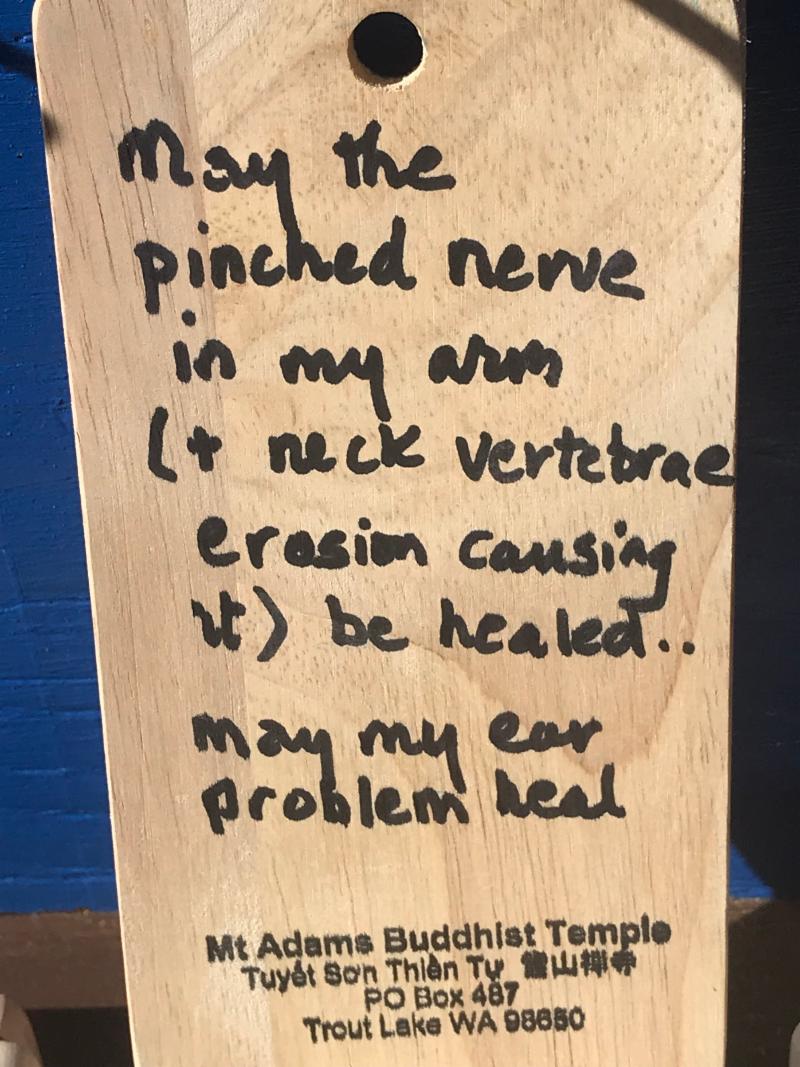 May the
pinched nerve
in my arm
(+ neck vertebrae
erosion causing
it) be healed..
may my ear
problem heal
Mt Adams Buddhist Temple
Tuyết Sơn Thiền Tự 雪山禪寺
PO Box 487
Trout Lake WA 98650